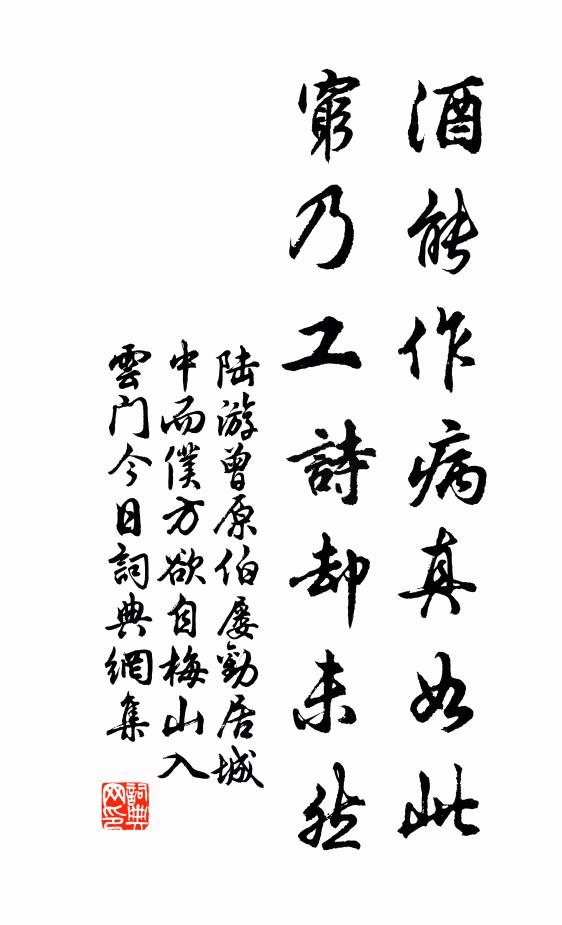 酒能作病真如此
窮乃工詩却未然
陆游曾原伯屡勸居城
中而僕方欲自梅山入
雲门今日詞典網集
詞典
网印